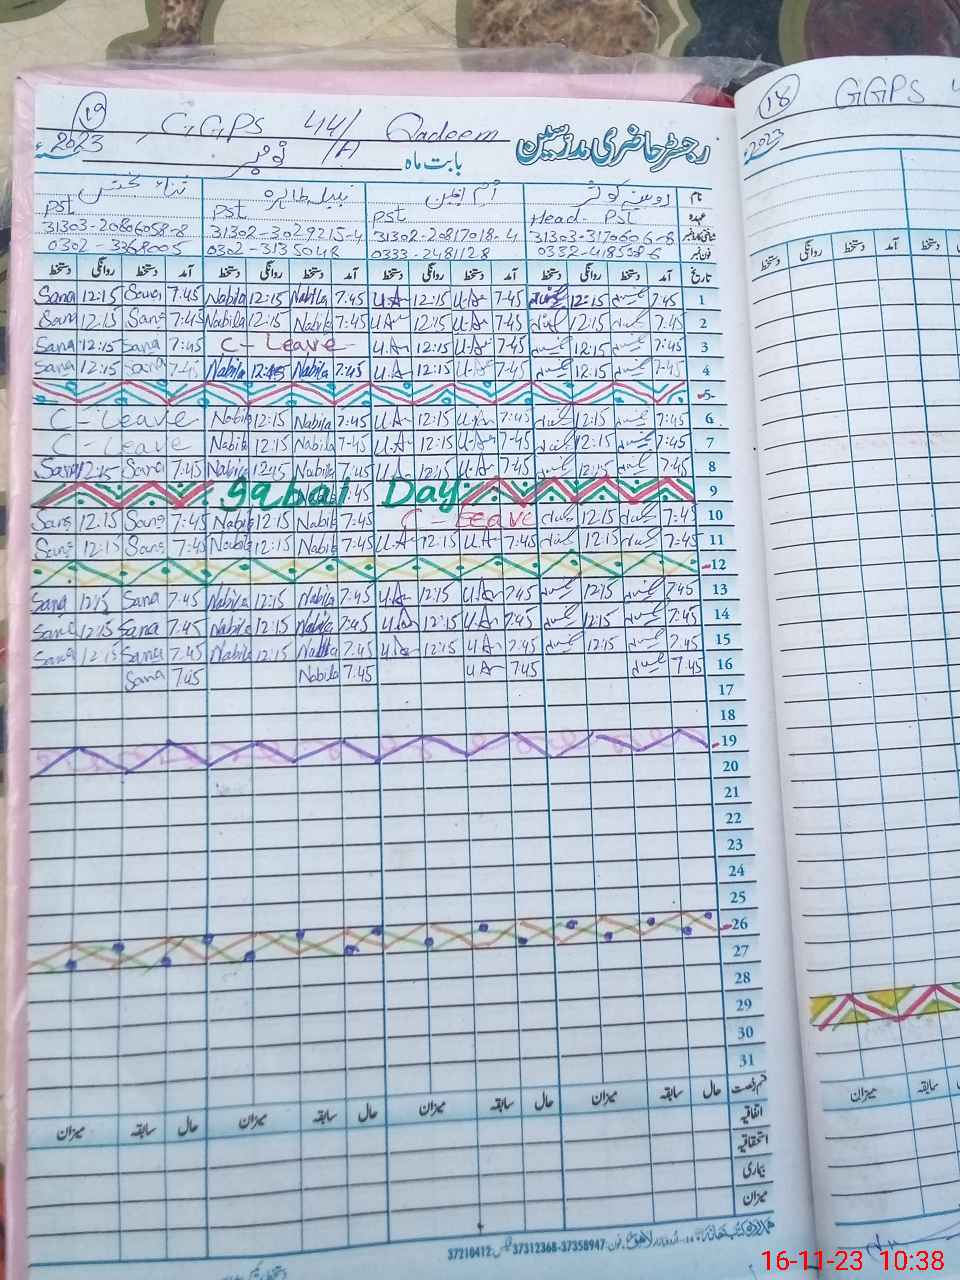 19
GGPS 44/A Qadeem
رجسٹر حاضری مدرسین
2023ء بابت ماہ نومبر
نام
روبینہ کوثر
نبیلہ طاہرہ
عہدہ Head- PST PST PST PST
31302-20817018-4 31302-3029215-4 31303-20806058-8
0333-2481128
تاریخ آمد دستخط روانگی دستخط آمد دستخط روانگی دستخط آمد دستخط روانگی دستخط آمد دستخط روانگی دستخط
Sana 12:15 Sana 7:45 Nabila 12:15 Nabila 7:45 U.A 12:15 U.A 7:45 12:15 7:45 1
Sana 12:15 Sana 7:45 Nabila 12:15 Nabila 7:45 U.A 12:15 U.A 7:45 12:15 7:45 2
Sana 12:15 Sana 7:45 C- Leave U.A 12:15 U.A 7:45 12:15 7:45 3
Sana 12:15 Sana 7:45 Nabila 12:45 Nabila 7:45 U.A 12:15 U.A 7:45 12:15 7:45 4
5
C- Leave Nabila 12:15 Nabila 7:45 U.A 12:15 U.A 7:45 12:15 7:45 6
C- Leave Nabila 12:15 Nabila 7:45 U.A 12:15 U.A 7:45 12:15 7:45 7
Sana 12:15 Sana 7:45 Nabila 12:15 Nabila 7:45 U.A 12:15 U.A 7:45 12:15 7:45 8
Iqabal Day 9
Sana 12:15 Sana 7:45 Nabila 12:15 Nabila 7:45 C- Leave 12:15 7:45 10
Sana 12:15 Sana 7:45 Nabila 12:15 Nabila 7:45 U.A 12:15 U.A 7:45 12:15 7:45 11
12
Sana 12:15 Sana 7:45 Nabila 12:15 Nabila 7:45 U.A 12:15 U.A 7:45 12:15 7:45 13
Sana 12:15 Sana 7:45 Nabila 12:15 Nabila 7:45 U.A 12:15 U.A 7:45 12:15 7:45 14
Sana 12:15 Sana 7:45 Nabila 12:15 Nabila 7:45 U.A 12:15 U.A 7:45 12:15 7:45 15
Sana 7:45 Nabila 7:45 U.A 7:45 7:45 16
17
18
19
20
21
22
23
24
25
26
27
28
29
30
31
قسم رخصت حال سابقہ میزان حال سابقہ میزان حال سابقہ میزان حال سابقہ میزان
اتفاقیہ
استحقاقیہ
بیماری
میزان
37210412 37312368-37358947
18
GGPS 4
2023ء
آمد دستخط روانگی دستخط
سابقہ میزان
16-11-23 10:38